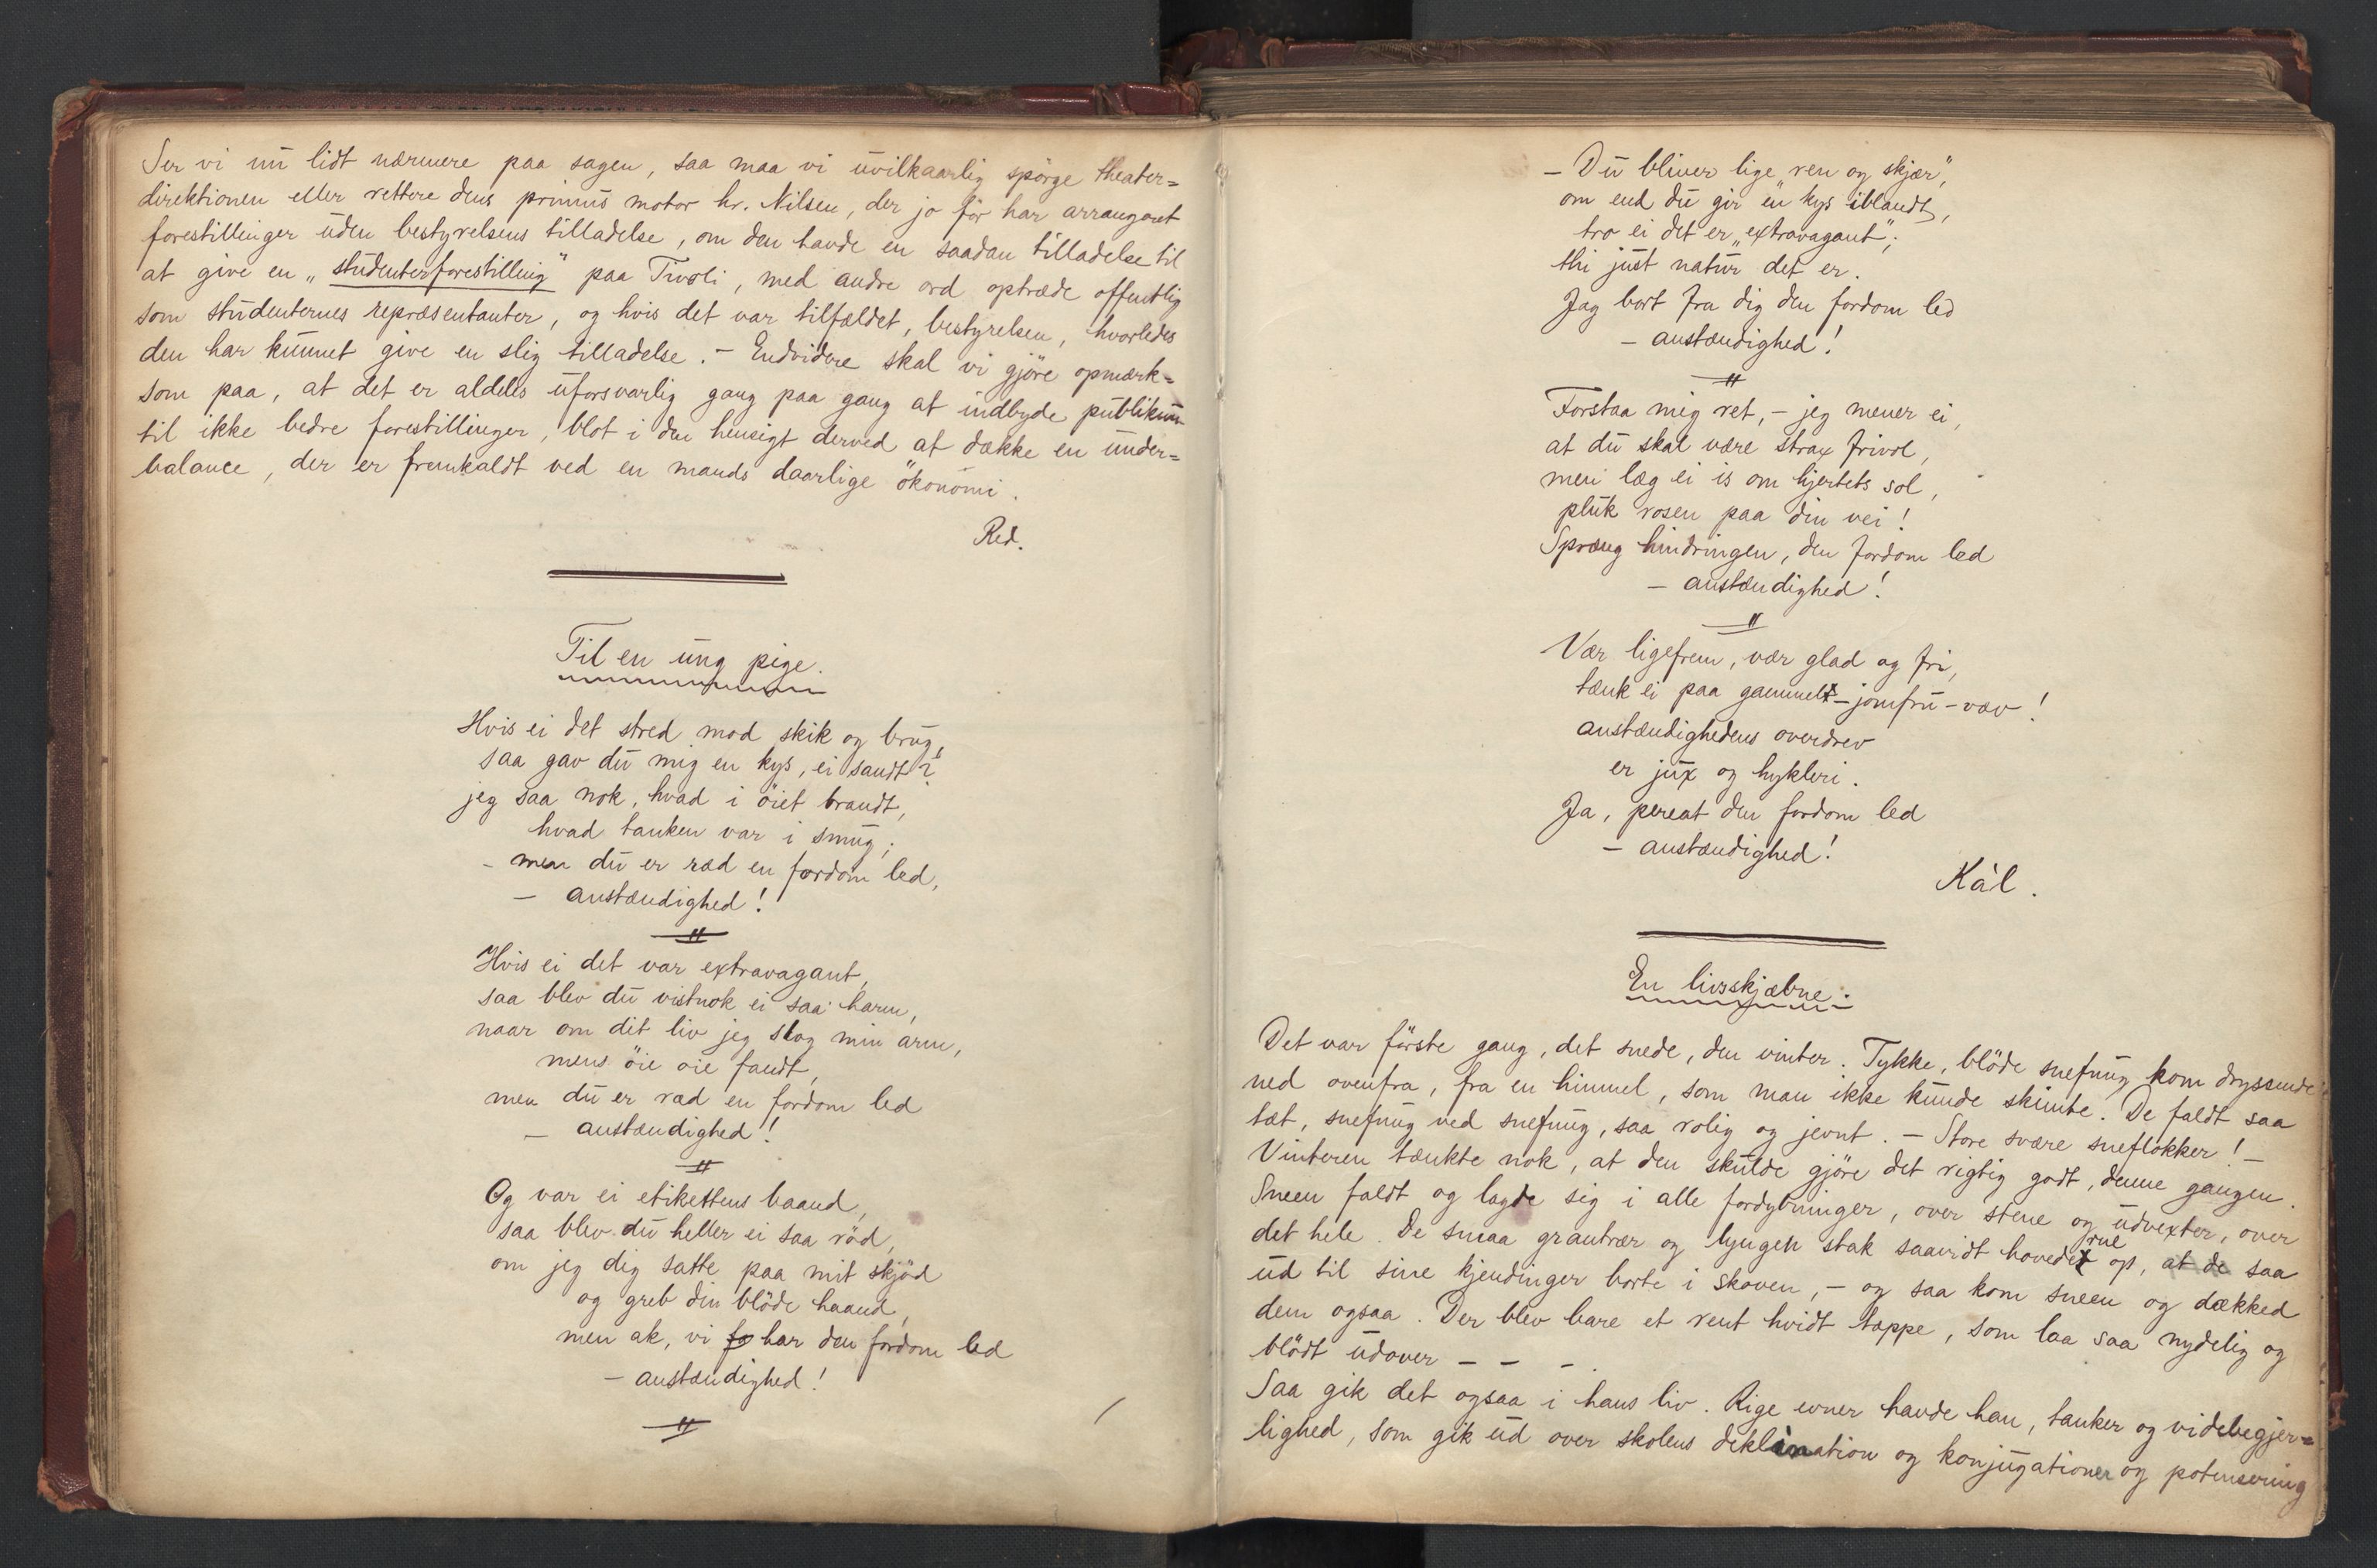 Ser vi nu lidt nærmere paa sagen, saa maa vi uvilkaarlig spörge theater=
direktionen eller rettere dens primus motor hr. Nilsen, der jo för har arrangeret
forestillinger uden bestyrelsens tilladelse, om den havde en saadan tilladelse til
at give en „studenterforestilling" paa Tivoli, med andre ord optræde offentlig
som studenternes repræsentanter, og hvis det var tilfældet, bestyrelsen, hvorledes
den har kunnet give en slig tilladelse. – Endvidere skal vi gjöre opmærk=
som paa, at det er aldeles uforsvarlig gang paa gang at indbyde publikum
til ikke bedre forestillinger, blot i den hensigt derved at dække en under=
balance, der er fremkaldt ved en mands daarlige ökonomi.
Red.
Til en ung pige.
Hvis ei det stred mod skik og brug,
saa gav du mig en kys, ei sandt?
jeg saa nok, hvad i öiet brandt,
hvad tanken var i smug;
– men du er ræd en fordom led,
– anstændighed!
Hvis ei det var extravagant,
saa blev du vistnok ei saa harm,
naar om dit liv jeg slog min arm,
mens öie oie fandt,
men du er ræd en fordom led
– anstændighed!
Og var ei etikettens baand,
saa blev du heller ei saa röd,
om jeg dig satte paa mit skjöd
og greb din blöde haand,
men ak, vi fo har den fordom led
– anstændighed!
– Du bliver lige „ren og skjær",
om end du gir en kys iblandt,
tro ei det er „extravagant";
thi just natur det er.
Jag bort fra dig den fordom led
– anstændighed!
Forstaa mig ret, – jeg mener ei,
at du skal være strax frivol,
men læg ei is om hjertets sol,
pluk rosen paa din vei!
Spræng hindringen, den fordom led
– anstændighed!
Vær ligefrem, vær glad og fri,
tænk ei paa gammelt-jomfru-væv!
anstændighedens overdrev
er jux og hykleri.
Ja, pereat den fordom led
– anstændighed!
Kàl.
En livsskjæbne.
Det var förste gang, det snede, den vinter. Tykke, blöde snefnug kom dryssende
ned ovenfra, fra en himmel, som man ikke kunde skimte. De faldt saa
tæt, snefnug ved snefnug, saa rolig og jevnt. – Store svære sneflokker! –
Vinteren tænkte nok, at den skulde gjöre det rigtig godt, denne gangen.
Sneen faldt og lagde sig i alle fordybninger, over stene og udvexter, over
det hele. De smaa grantrær og lyngen stak saavidt hovederne op, at de saa
ud til sine kjendinger borte i skoven, – og saa kom sneen og dækked
dem ogsaa. Der blev bare et rent hvidt tæppe, som laa saa nydelig og
blödt udover – – –
Saa gik det ogsaa i hans liv. Rige evner havde han, tanker og videbegjer=
lighed, som gik ud over skolens deklination og konjugationer og potensering